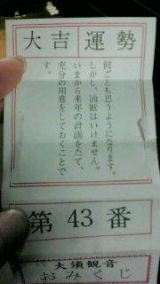 大吉運勢
何ごとも思うようになります。
しかし、油断はいけません。
いまから来年の計画をたて、
充分の用意をしておくことで
す。
第43番
大須観音
おみくじ